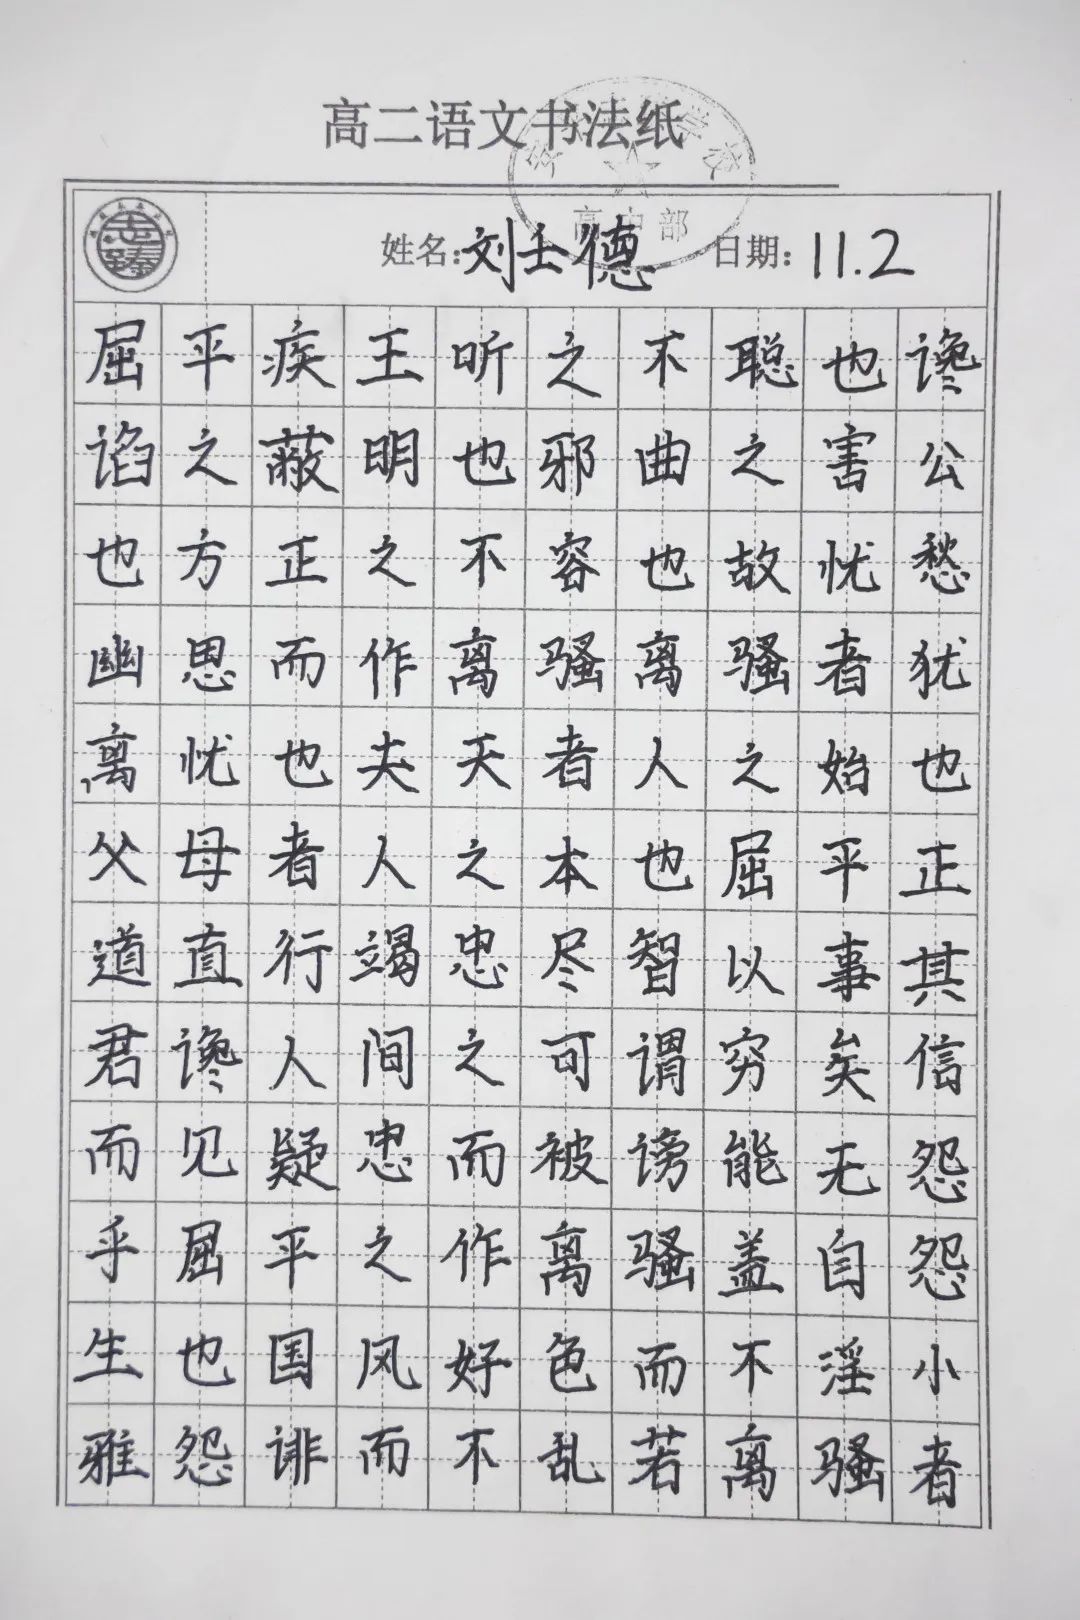 高二语文书法纸
高中部
姓名:刘士德 日期:11.2
屈平疾王听之不聪也谗
谄之蔽明也邪曲之害公
也方正之不容也故忧愁
幽思而作离骚离骚者犹
离忧也夫天者人之始也
父母者人之本也屈平正
道直行竭忠尽智以事其
君谗人间之可谓穷矣信
而见疑忠而被谤能无怨
乎屈平之作离骚盖自怨
生也国风好色而不淫小
雅怨诽而不乱若离骚者